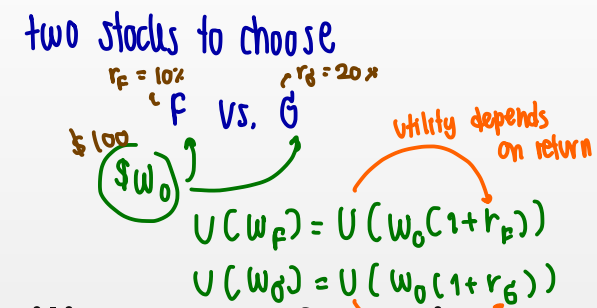 two stocks to choose
r_F = 10% r_G = 20%
F vs. G
$100
utility depends
on return
$W₀
U(W_F) = U(W₀(1+r_F))
U(W_G) = U(W₀(1+r_G))